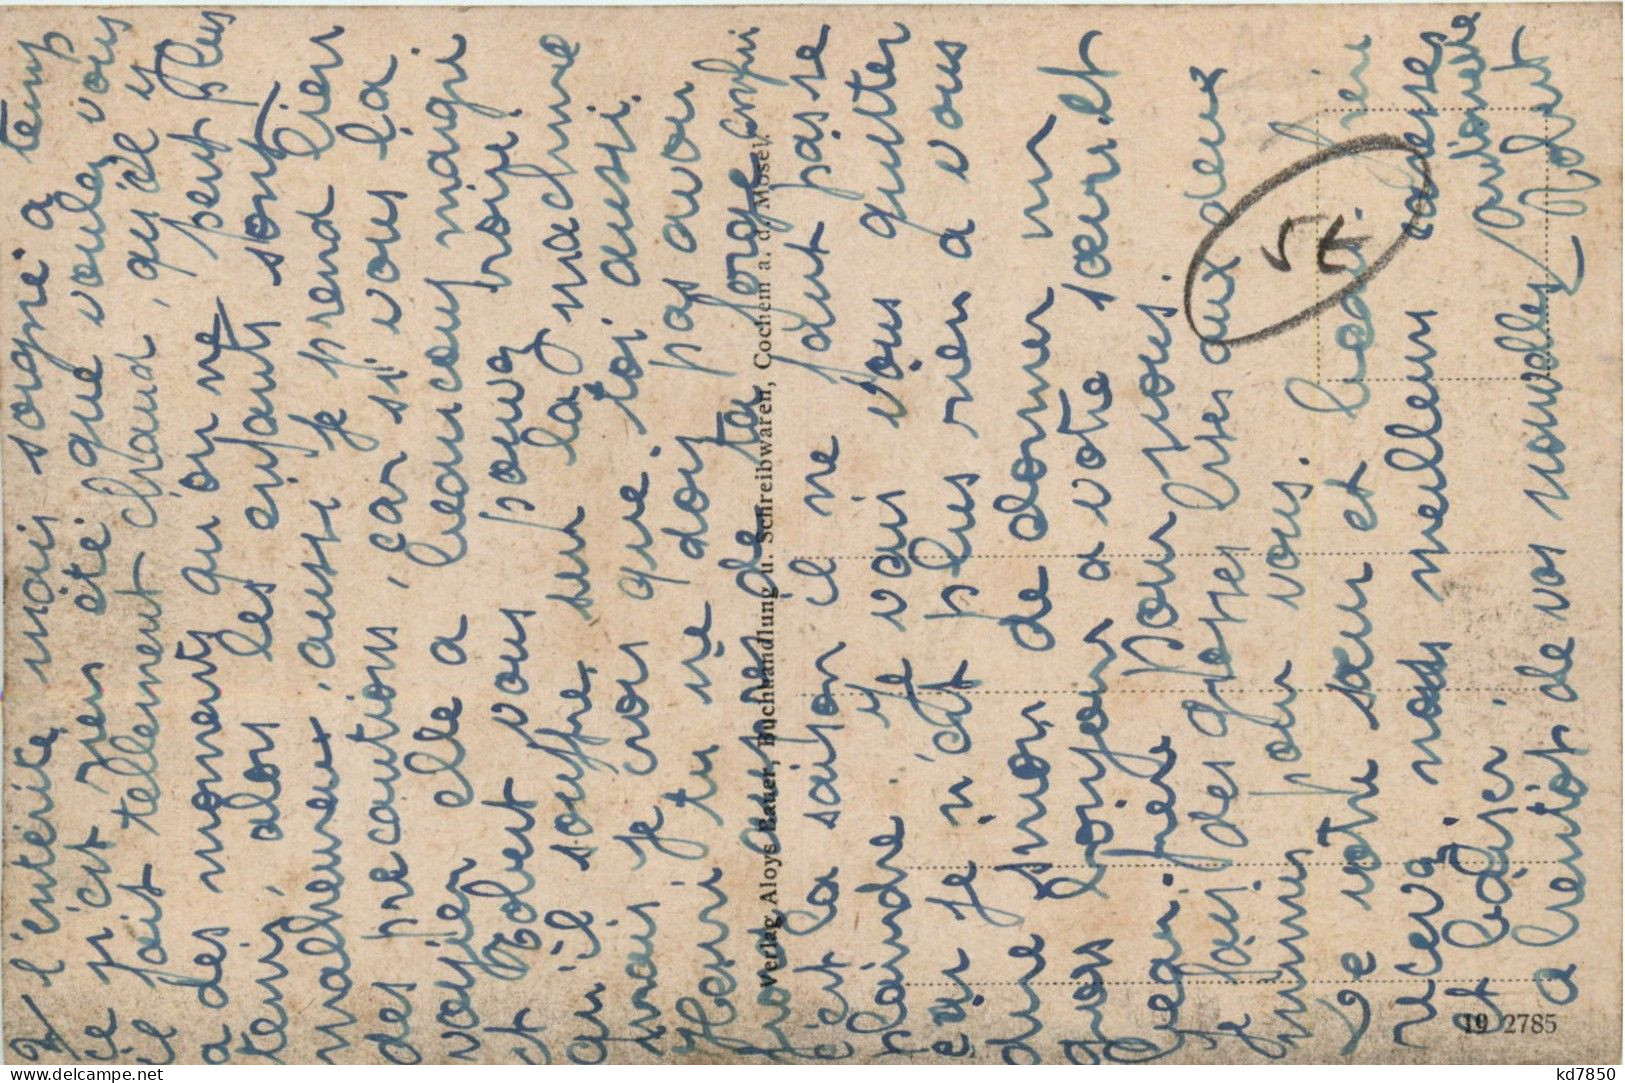 l'entérite, mais soigné a temp
ce n'est rien été. que voulez vous
il fait tellement chaud, qu'il y
a des moments qu'on ne peut plus
tenir, alors les enfants sont
malheureux, aussi je prend bien
des precautions, car si vous la
voyier elle a beaucoup maigri
et Robert vous pouvez croire
qu'il souffre sur la machine
mais je crois que toi aussi.
Henri tu ne dois pas avoir
froid aupres de ta forge enfin
c'est la saison il ne faut pas se
plaindre. Je vais vous quitter
car je n'est plus rien a vous
dire sinon de donner un
gros bonjour a votre sœur et
beau. frère pour nous.
Je fais des grosses bises aux deux
mimis pour vous.
De votre sœur et beau. frère
recevez nos meilleurs caresses
et baiser. Antoinette
a bientôt de vos nouvelles Robert
Verlag Aloys Bauer, Buchhandlung u. Schreibwaren, Cochem a. d. Mosel.
5€
19 2785
www.delcampe.net
kd7850